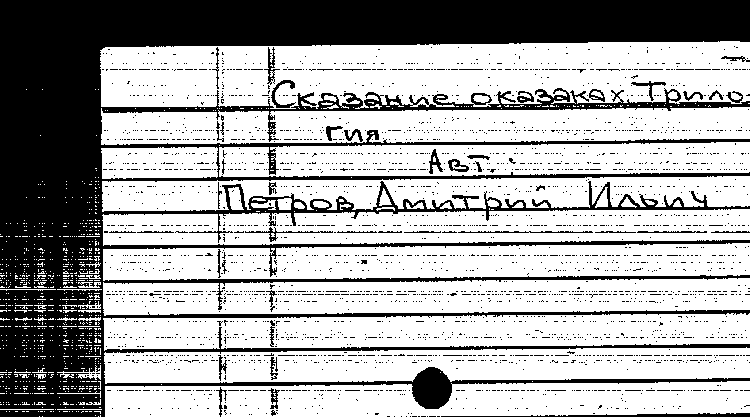 Сказание оказаках. Трило-
гия.
Авт.:
Петров, Дмитрий Ильич